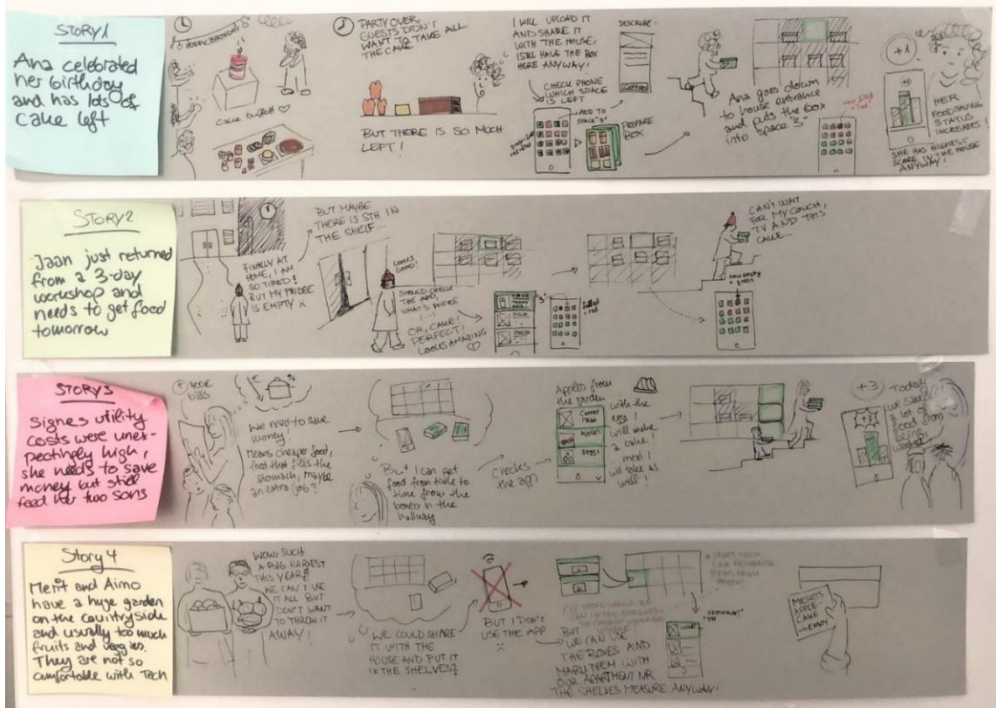 STORY 1
Ana celebrated
her birthday
and has lots of
cake left
HAPPY BIRTHDAY
PARTY OVER,
GUESTS DIDN'T
WANT TO TAKE ALL
THE CAKE
BUT THERE IS SO MUCH
LEFT!
I WILL UPLOAD IT
AND SHARE IT
WITH THE HOUSE,
I STILL HAVE THE BOX
HERE ANYWAY!
CHECK PHONE
WHICH SPACE
IS LEFT
ADD TO
SPACE "3"
DESCRIBE:
PREPARE
BOX
Ana goes down
to house entrance
and puts the box
into space "3"
+1
HER
FOODSHARING
STATUS
INCREASES!
SHE HAS HIGHEST
SCORE IN THE HOUSE
ANYWAY!
STORY 2
Jaan just returned
from a 3-day
workshop and
needs to get food
tomorrow
FINALLY AT
HOME, I AM
SO TIRED!
BUT MY FRIDGE
IS EMPTY
BUT MAYBE
THERE IS STH IN
THE SHELF...
LOOKS
GOOD!
SHOULD CHECK
THE APP,
WHAT'S INSIDE
OH, CAKE!
PERFECT!
LOOKS AMAZING
"3"
CAN'T WAIT
FOR MY COUCH,
TV AND THIS
CAKE...
STORY 3
Signes utility
costs were unex-
pectingly high,
she needs to save
money but still
feed her two sons
We need to save
money.
Means cheaper food,
food that fills the
stomach, maybe
an extra job?
But I can get
food from time to
time from the
boxes in the
hallway
Checks
the app
Apples from
the garden
Apples
EGGS
with the
egg I
will make
a cake!
meat I
will take as
well!
+3
Today
we saved
a lot of
food from
being
wasted!
Story 4
Merit and Aimo
have a huge garden
on the countryside
and usually too much
fruits and veggies.
They are not so
comfortable with Tech
WOW, SUCH
A BIG HARVEST
THIS YEAR!
WE CAN'T USE
IT ALL BUT
DON'T WANT
TO THROW IT
AWAY!
WE COULD SHARE
IT WITH THE
HOUSE AND PUT IT
IN THE SHELVES?
BUT I DON'T
USE THE APP
BUT
WE CAN USE
THE BOXES AND
MARK THEM WITH
OUR APARTMENT NR
THE SHELVES MEASURE ANYWAY!
MERIT'S
APPLE
CAKE